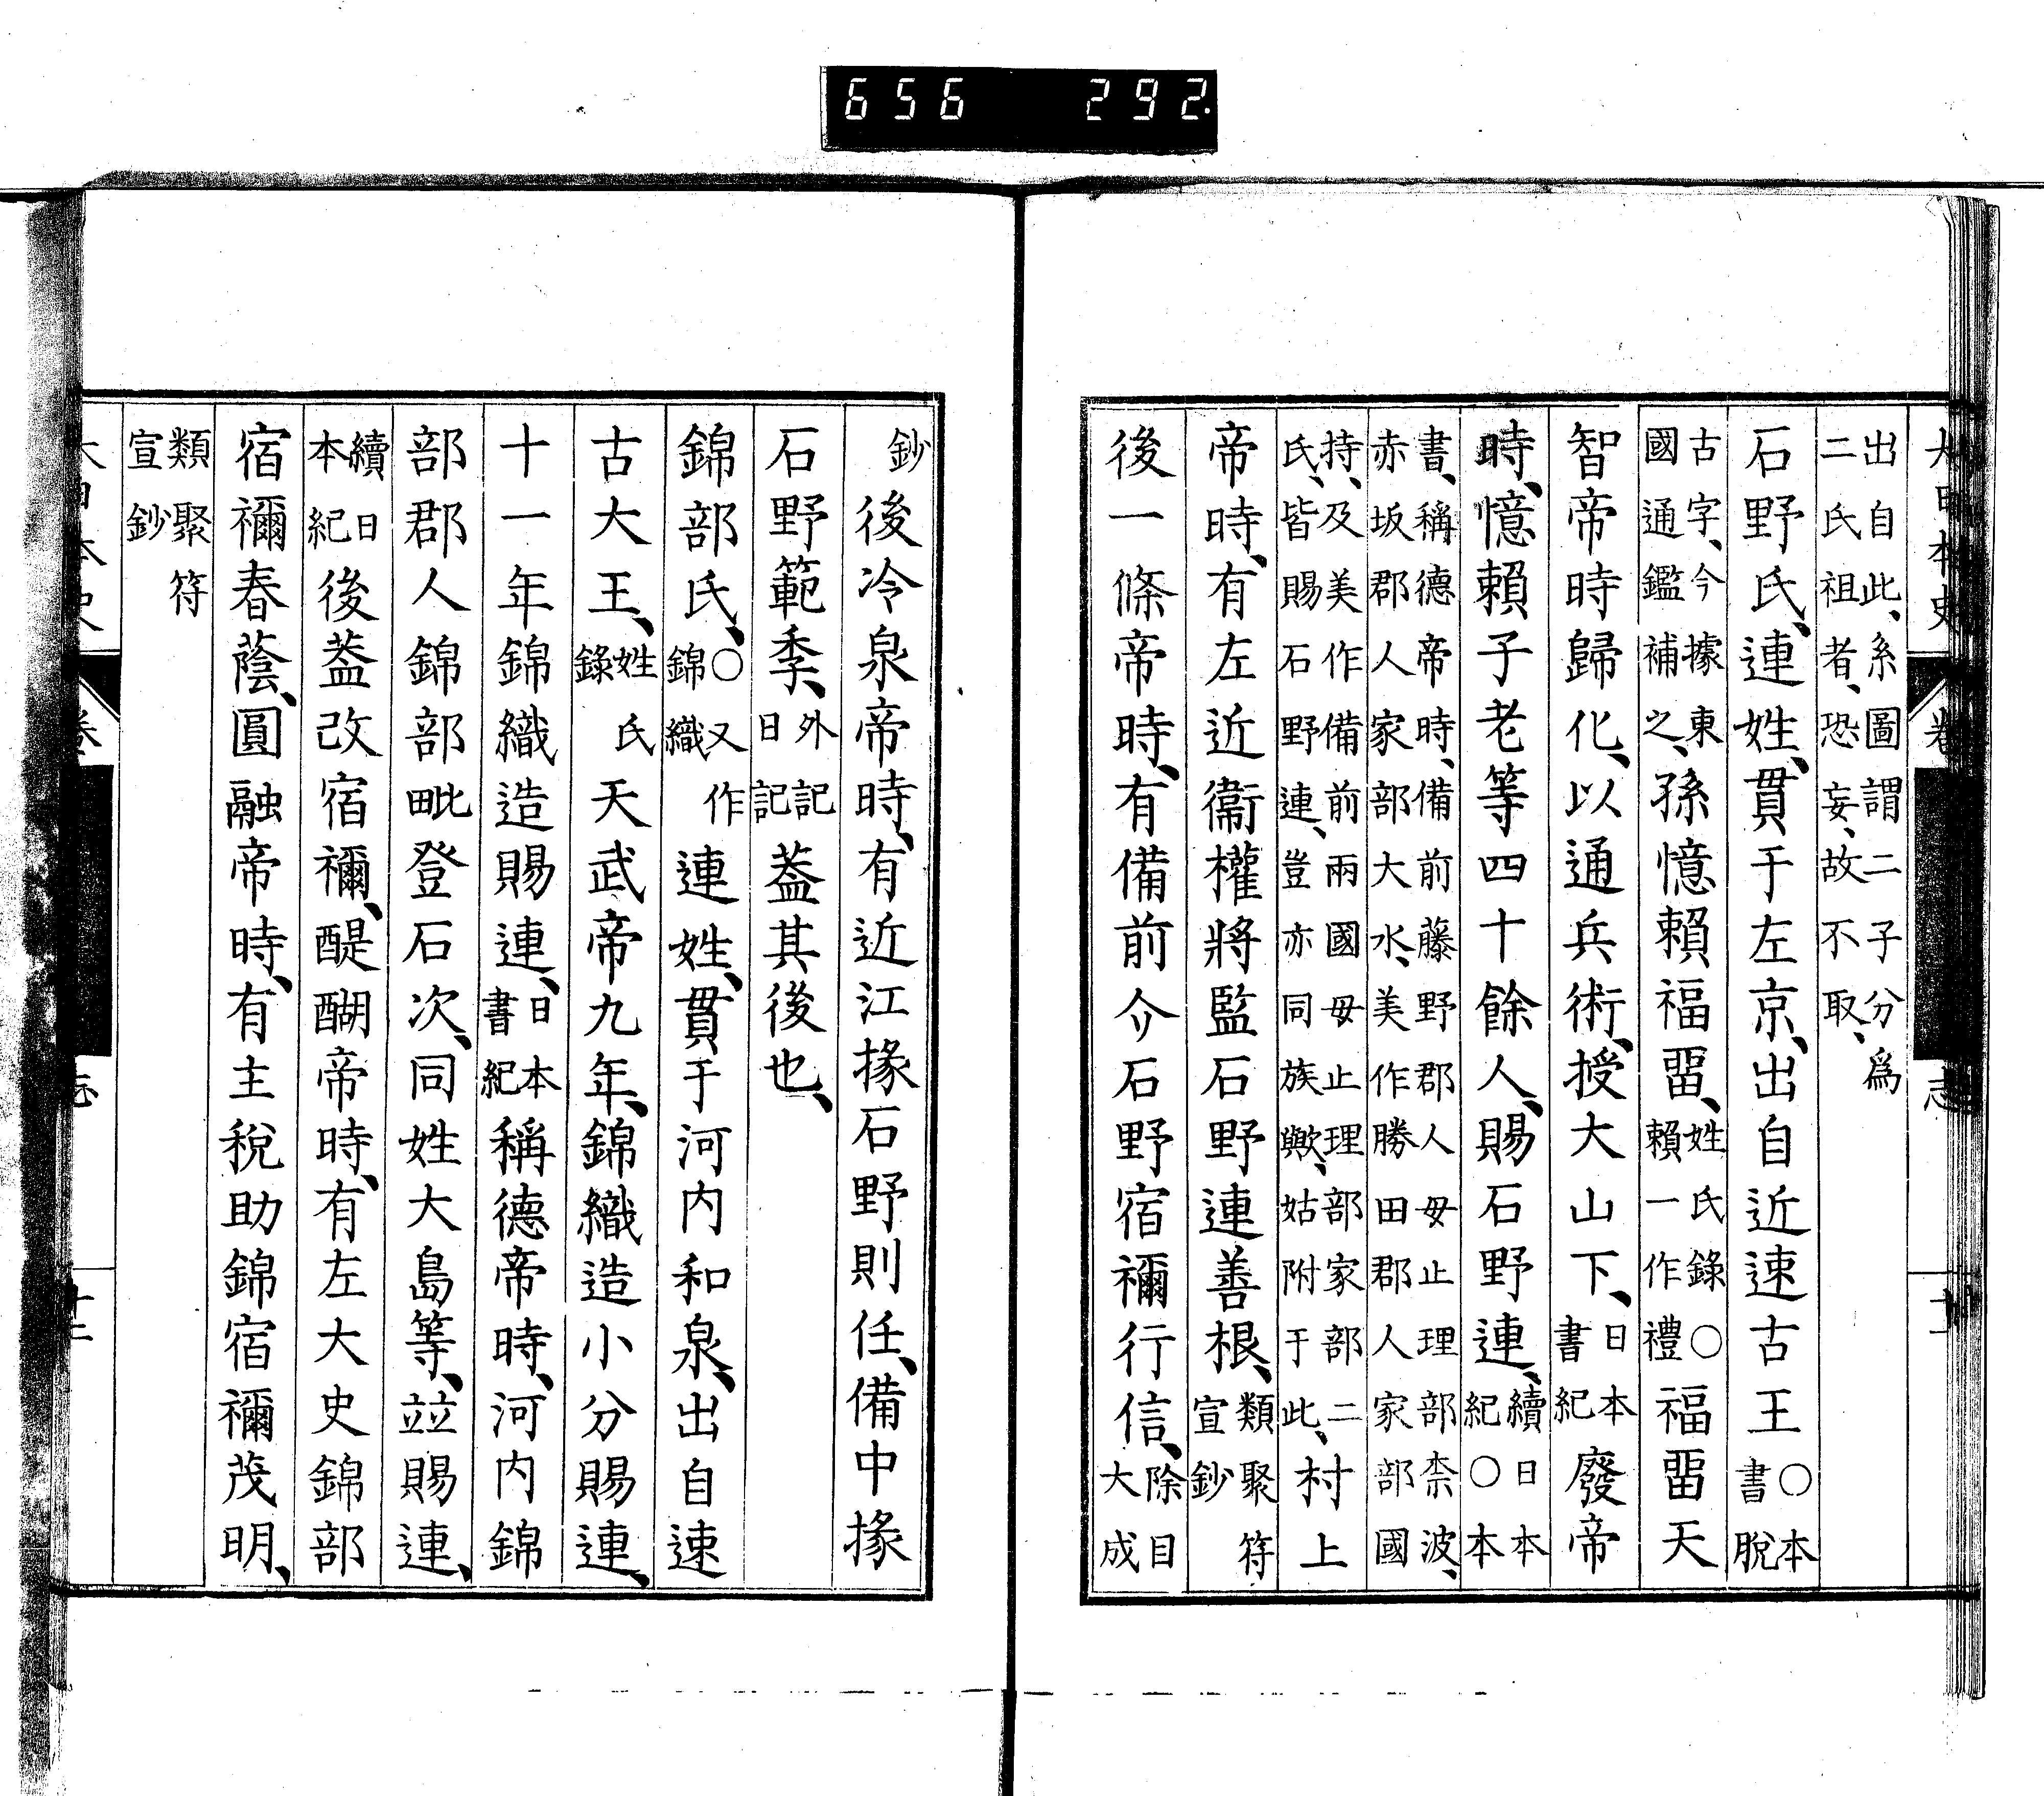 656 292.
出自此、系圖謂二子分爲
二氏祖者、恐妄、故不取、
石野氏、連姓、貫于左京、出自近速古王○本書脫
古字、今據東國通鑑補之、孫憶賴福畱、姓氏錄○賴一作禮福畱天
智帝時歸化、以通兵術、授大山下、日本書紀廢帝
時、憶賴子老等四十餘人、賜石野連、續日本紀○本
書、稱德帝時、備前藤野郡人母止理部柰波、赤坂郡人家部大水、美作勝田郡人家部國
持、及美作備前兩國母止理部家部二氏、皆賜石野連、豈亦同族歟、姑附于此、村上
帝時、有左近衞權將監石野連善根、類聚符宣鈔
後一條帝時、有備前介石野宿禰行信、除目大成
鈔後冷泉帝時、有近江掾石野則任、備中掾
石野範季、外記日記葢其後也、
錦部氏、○又作錦織連姓、貫于河内和泉、出自速
古大王、姓氏錄天武帝九年、錦織造小分賜連、
十一年錦織造賜連、日本書紀稱德帝時、河内錦
部郡人錦部毗登石次、同姓大島等、竝賜連、
續日本紀後葢改宿禰、醍醐帝時、有左大史錦部
宿禰春蔭、圓融帝時、有主稅助錦宿禰茂明、
類聚符宣鈔